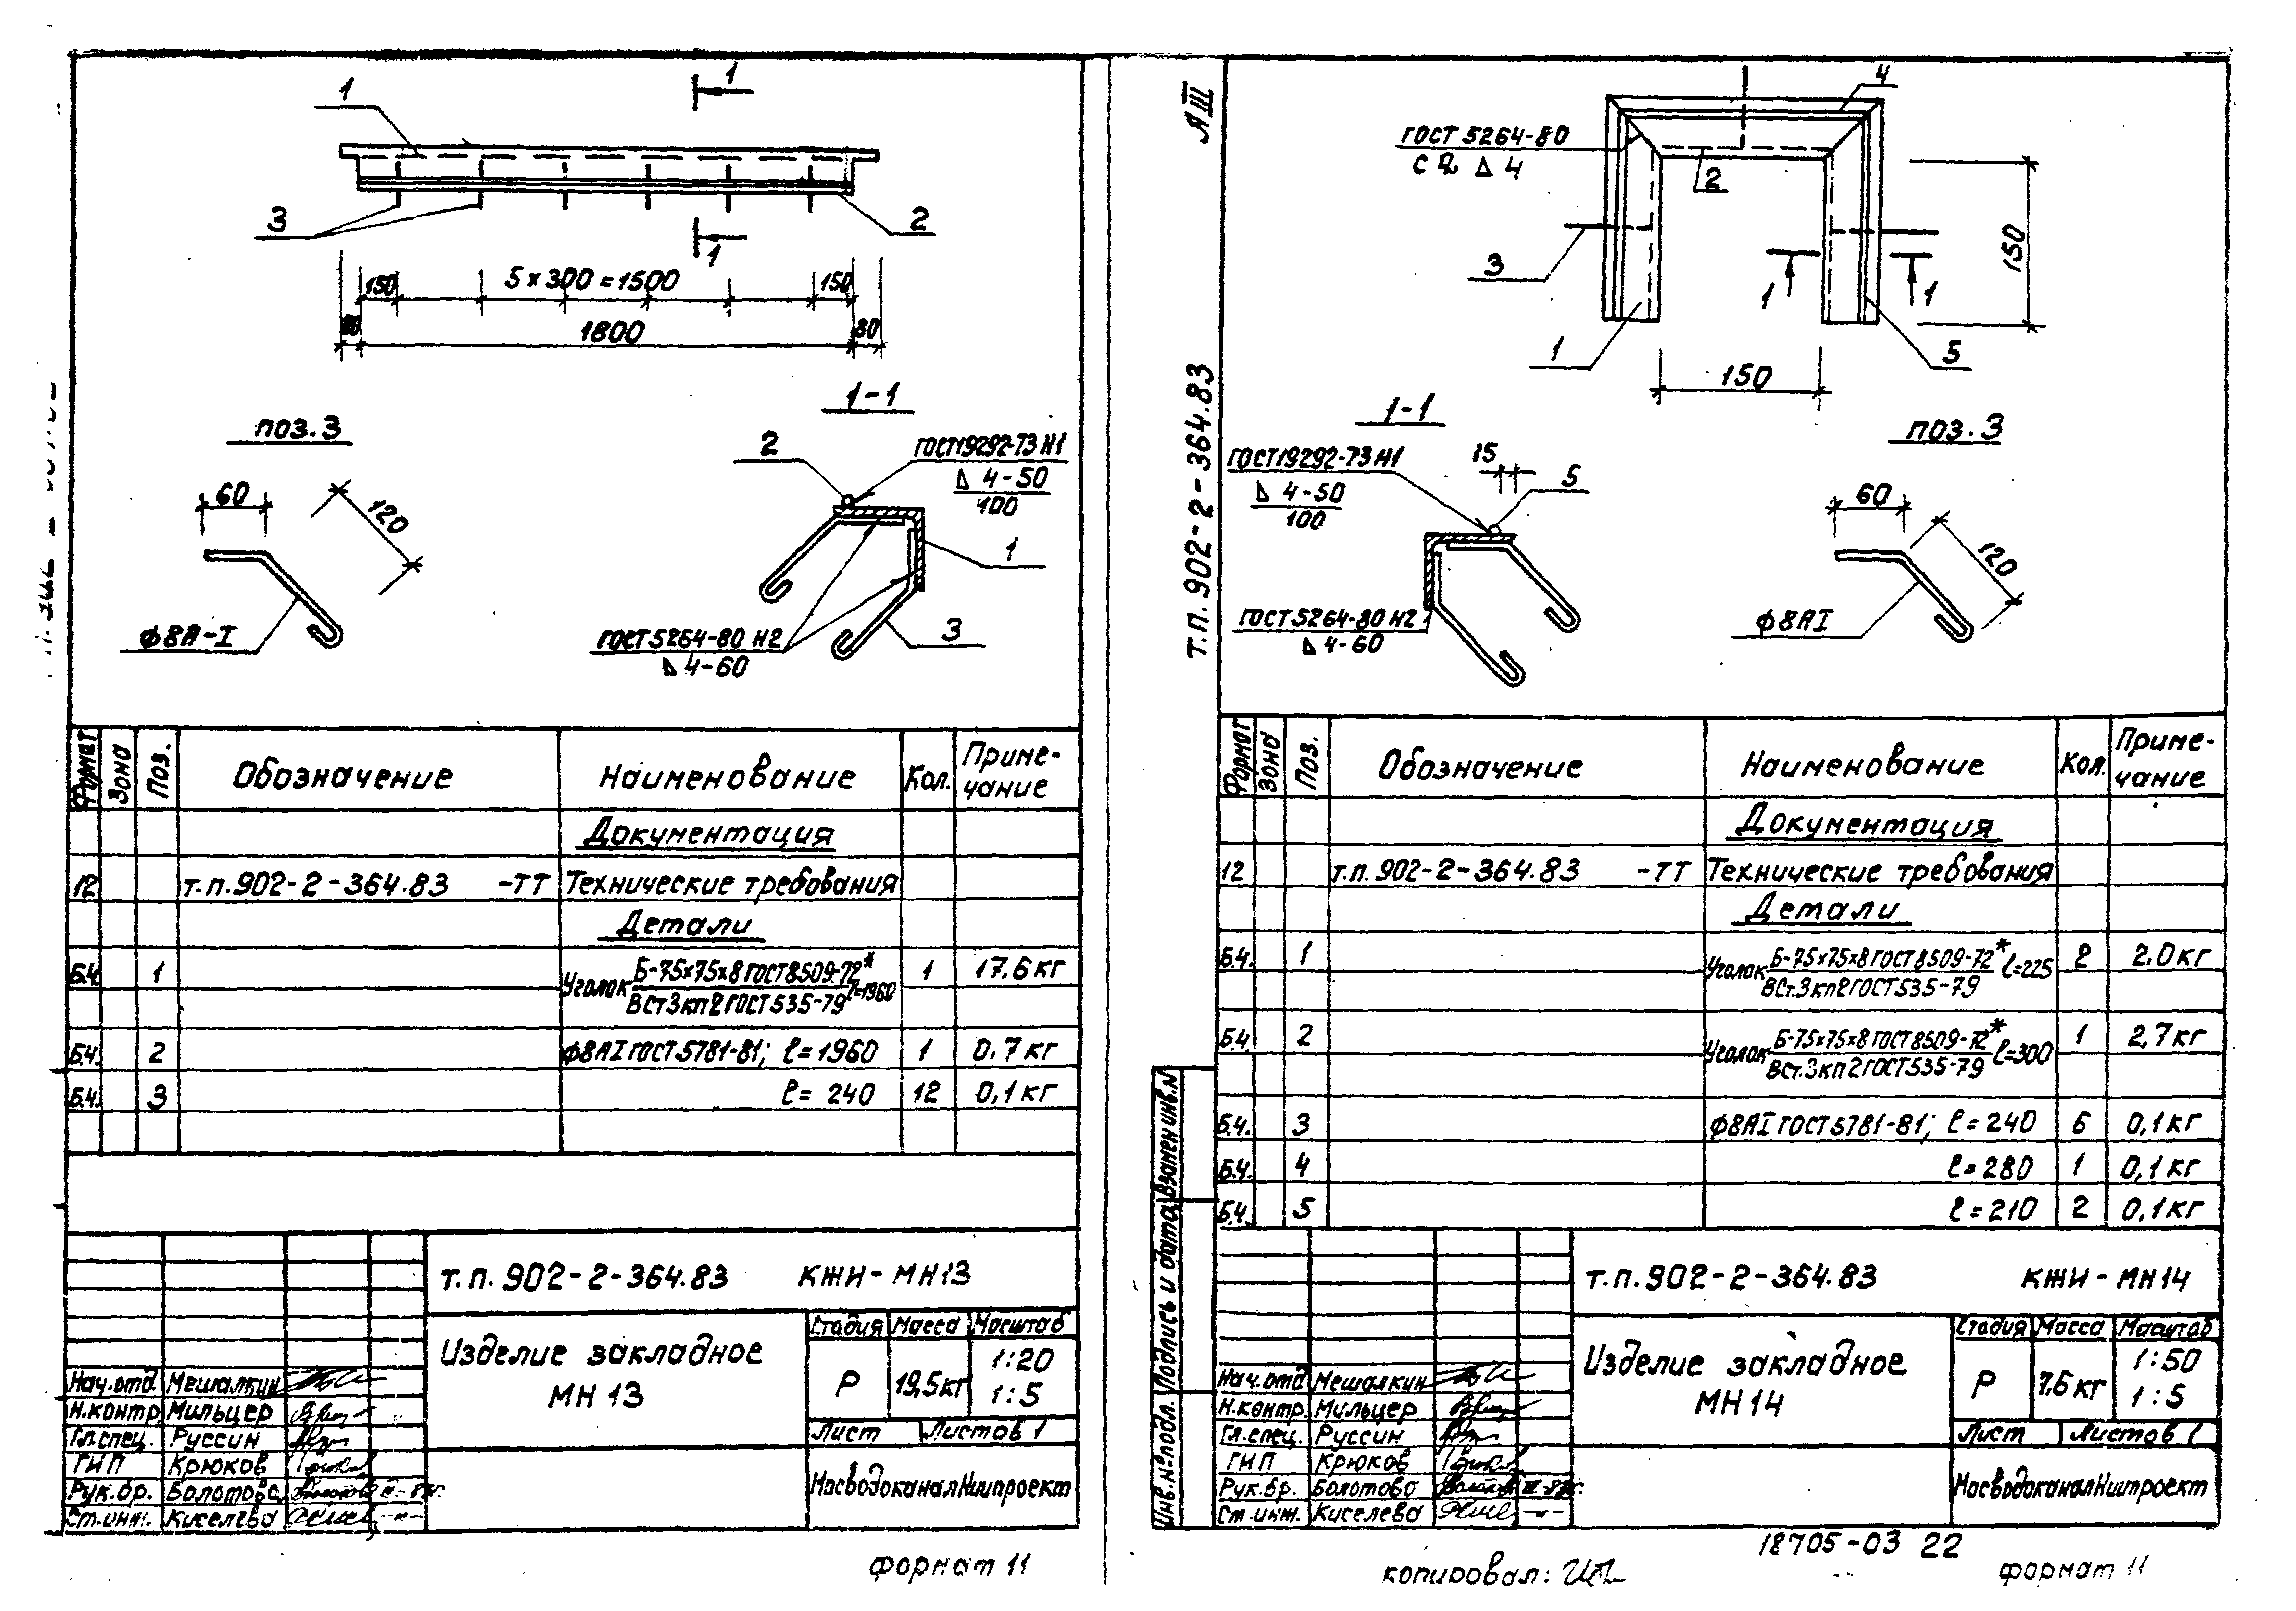 1
1
3
2
1
150
5×300=1500
150
80
1800
80
1-1
поз.3
60
120
ф8А-I
2
ГОСТ19292-73 Н1
Δ 4-50
100
1
ГОСТ5264-80 Н2
Δ 4-60
3
Формат Зона Поз. Обозначение Наименование Кол. Приме-
чание
Документация
12 т.п.902-2-364.83 -ТТ Технические требования
Детали
Б.4. 1 Уголок Б-75×75×8 ГОСТ 8509-72* 1 17,6 кг
ВСт3кп2 ГОСТ 535-79 ℓ=1960
Б.4. 2 ф8АI ГОСТ 5781-81; ℓ=1960 1 0,7 кг
Б.4. 3 ℓ= 240 12 0,1 кг
т.п.902-2-364.83 КЖИ-МН13
Изделие закладное
МН 13
Стадия Масса Масштаб
Р 19,5кг 1:20
1:5
Лист Листов 1
МосводоканалНиипроект
Нач.отд. Мешалкин
Н.контр. Мильцер
Гл.спец. Руссин
ГИП Крюков
Рук.бр. Болотова
Ст.инж. Киселева
формат 11
А III
т.п.902-2-364.83
4
ГОСТ 5264-80
С2 Δ 4
2
3
150
1
1
1
5
150
1-1
поз.3
ГОСТ19292-73 Н1
Δ 4-50
100
15
5
ГОСТ5264-80 Н2
Δ 4-60
60
120
ф8АI
Формат Зона Поз. Обозначение Наименование Кол. Приме-
чание
Документация
12 т.п.902-2-364.83 -ТТ Технические требования
Детали
Б.4. 1 Уголок Б-75×75×8 ГОСТ 8509-72* ℓ=225 2 2,0 кг
ВСт.3кп2 ГОСТ 535-79
Б.4. 2 Уголок Б-75×75×8 ГОСТ 8509-72* ℓ=300 1 2,7 кг
ВСт.3кп2 ГОСТ 535-79
Б.4. 3 ф8АI ГОСТ 5781-81; ℓ=240 6 0,1 кг
Б.4. 4 ℓ=280 1 0,1 кг
Б.4. 5 ℓ=210 2 0,1 кг
т.п.902-2-364.83 КЖИ-МН14
Изделие закладное
МН 14
Стадия Масса Масштаб
Р 7,6 кг 1:50
1:5
Лист Листов 1
МосводоканалНиипроект
Нач.отд Мешалкин
Н.контр. Мильцер
Гл.спец. Руссин
ГИП Крюков
Рук.бр. Болотова
Ст.инж. Киселева
Инв.№подл. Подпись и дата Взамен инв.N
18705-03 22
копировал:
формат 11